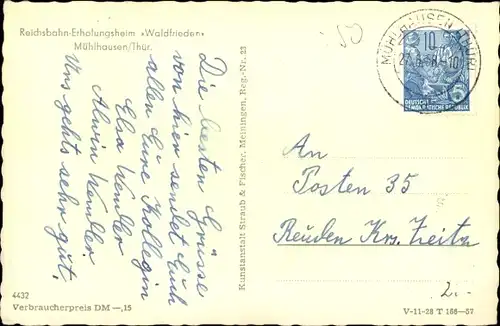 Reichsbahn-Erholungsheim »Waldfrieden«
Mühlhausen/Thür.
Die besten Grüsse
von hier sendet Euch
allen Eure Kollegin
Elsa Wendler
Alwin Wendler
Uns gehts sehr gut.
4432
Verbraucherpreis DM —,15
Kunstanstalt Straub & Fischer, Meiningen, Reg.-Nr. 23
MÜHLHAUSEN (THÜR)
10
DEUTSCHE
DEMOKRATISCHE REPUBLIK
An
Posten 35
Reuden Krs. Zeitz
2.-
V-11-28 T 188—57